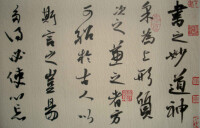 書之妙道神
采為上形質
次之兼之者方
可紹於古人以
斯言之豈易
多得必使心忘